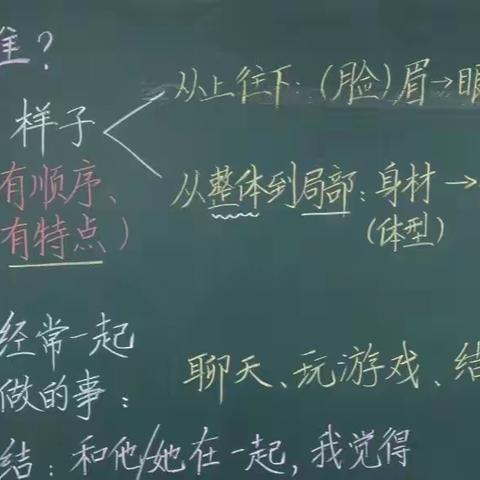 谁？
从上往下：（脸）眉→眼
样子
有顺序、
从整体到局部：身材→
有特点）
（体型）
经常一起
做的事：
聊天、玩游戏、结
结：和他/她在一起，我觉得